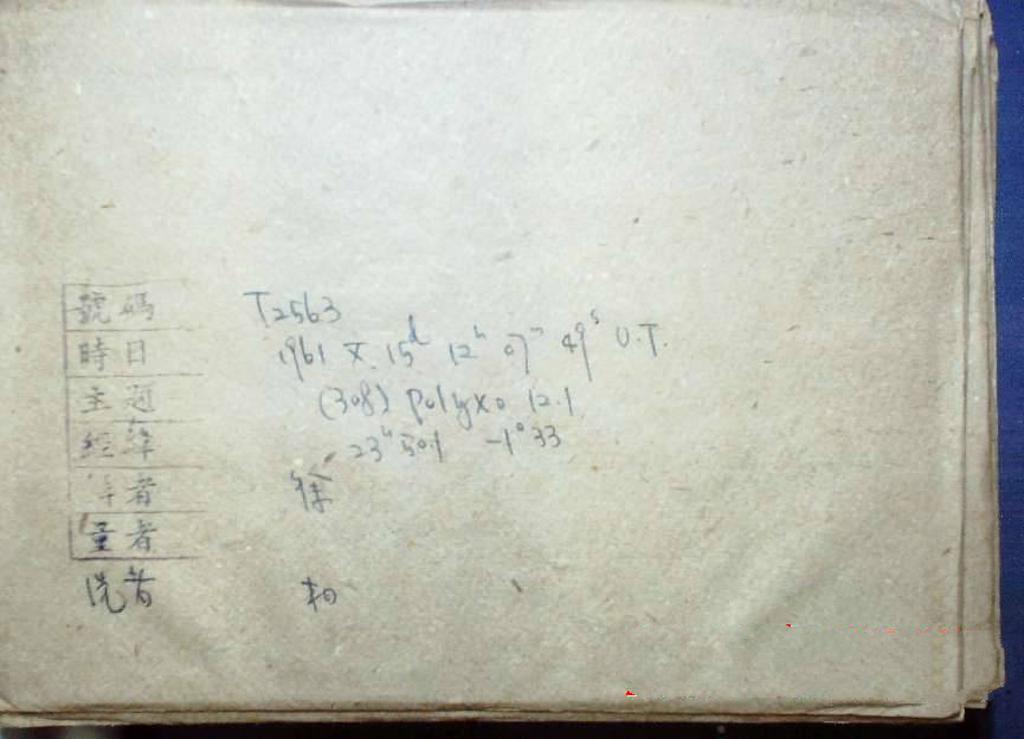 號碼 T2563
時日 1961 X. 15d 12h 07m 49s U.T.
主 (308) polyxo 12.1
經 23h 50.1 -1°33
者 徐
量者
洗者